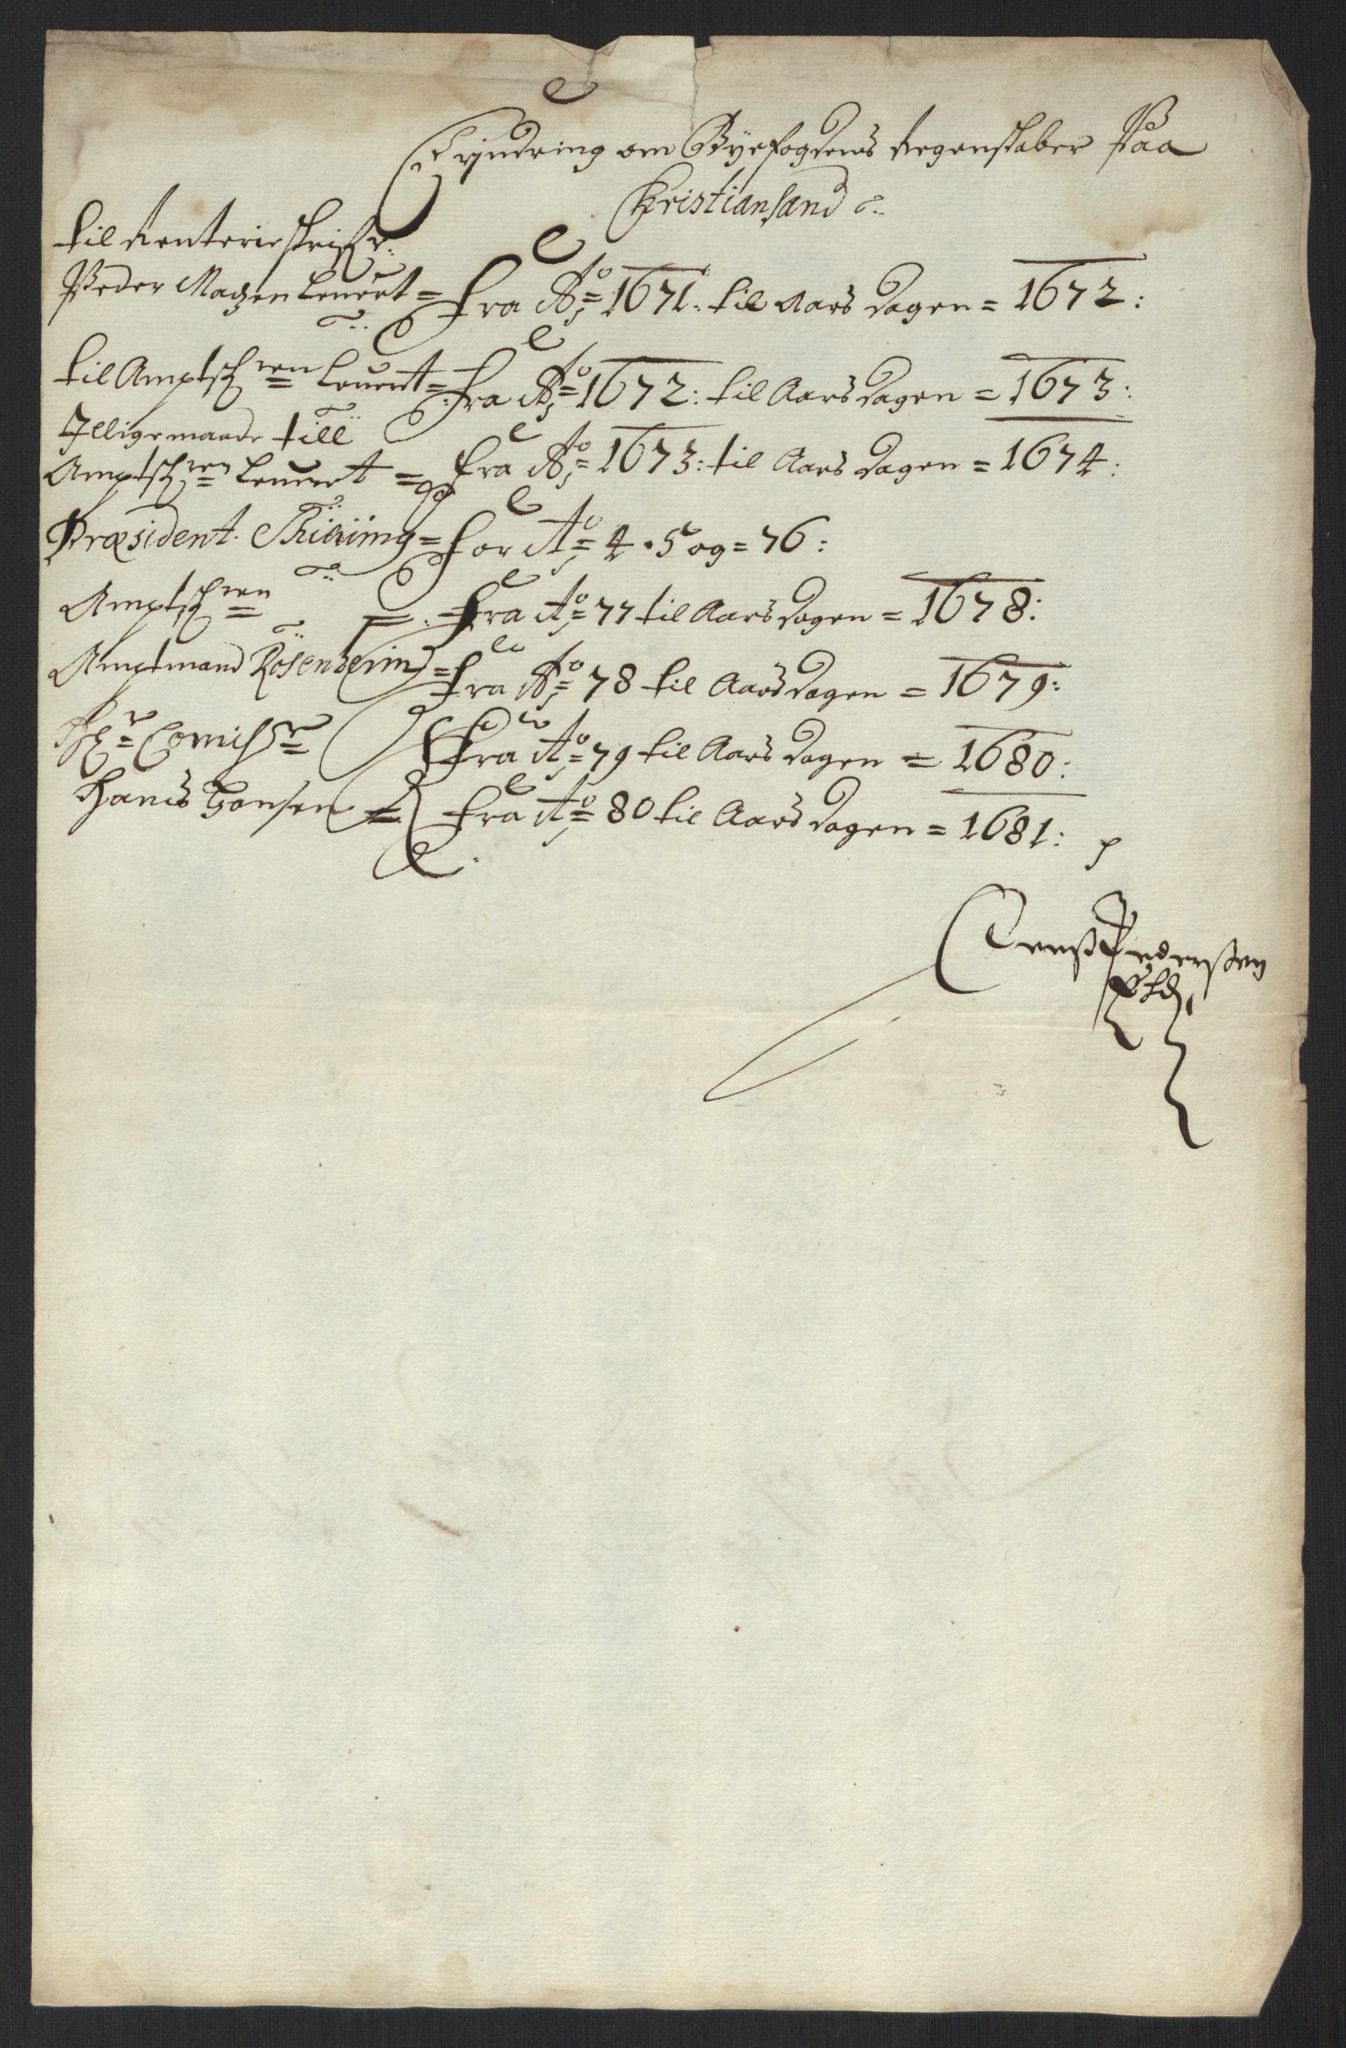 Erindring om Byefogdens Regenskaber Paa
Christiansand
til Renterieskrifr:
Peder Madzen Leuert = Fra Ao 1671: til Aars dagen = 1672:
til Amptsch: Leuert = Fra Ao 1672: til Aars dagen = 1673:
Jlligemaade till
Amptsch: Leuert = Fra Ao 1673: til Aars dagen = 1674:
Præsident = for Ao 4 . 5 og = 76:
Amptsch: = Fra Ao 77 til Aars dagen = 1678:
Amptmand Rosenheim = Fra Ao 78 til Aars dagen = 1679:
Hr Comissr Fra Ao 79 til Aars dagen = 1680:
Hans Hansen = Fra Ao 80 til Aars dagen = 1681:
Pedersen